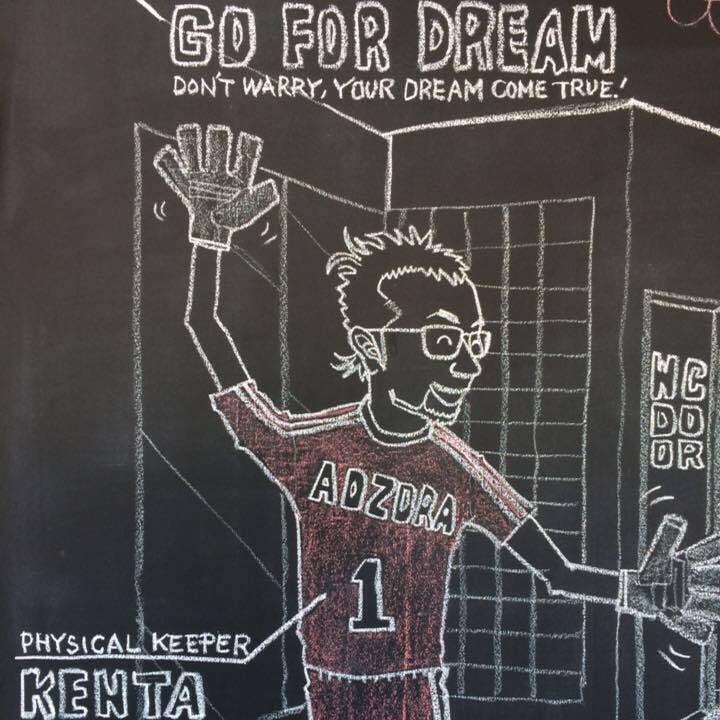 GO FOR DREAM
DON'T WARRY, YOUR DREAM COME TRUE!
WC
DO
OR
ADZDRA
1
PHYSICAL KEEPER
KENTA